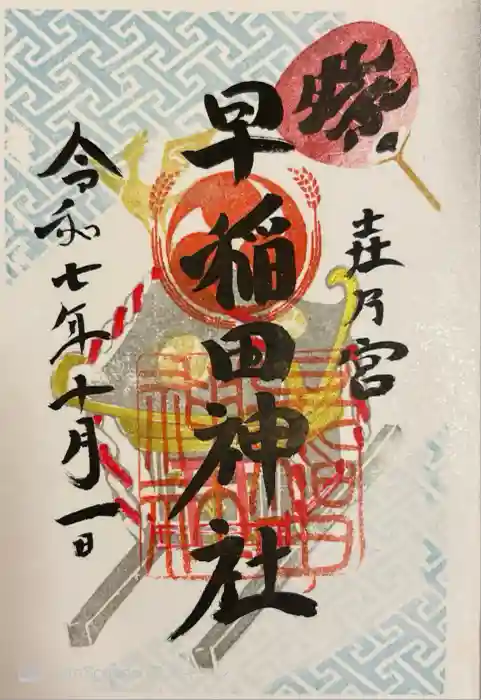 祭
壵乃宮
早稲田神社
令和七年十月一日